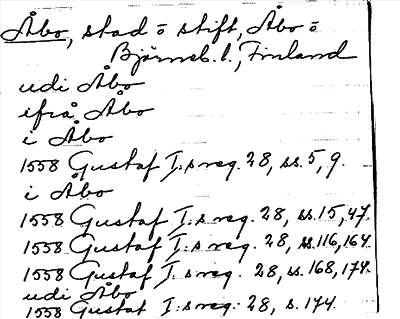 Åbo, stad o stift, Åbo o
Björneb. l., Finland
udi Åbo
ifrå Åbo
i Åbo
1558 Gustaf I:s reg. 28, ss. 5, 9.
i Åbo
1558 Gustaf I:s reg. 28, ss. 15, 47.
1558 Gustaf I:s reg. 28, ss. 116, 164.
1558 Gustaf I:s reg. 28, ss. 168, 174.
udi Åbo
1558 Gustaf I:s reg. 28, s. 174.